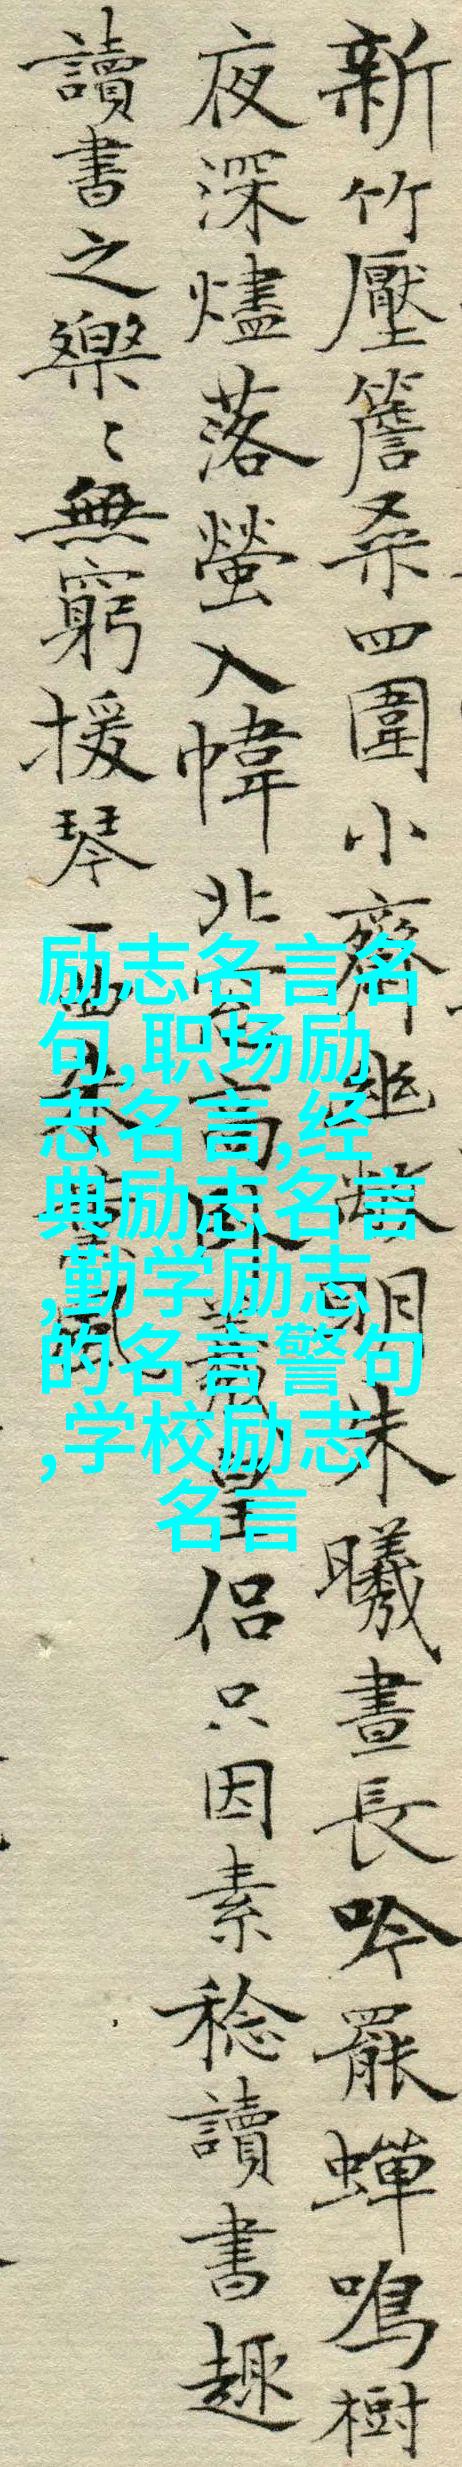 新竹壓簷桑四圍小齋幽敞明朱曦晝長吟罷蟬鳴樹
夜深燼落螢入幃北窗高臥羲皇侶只因素稔讀書趣
讀書之樂〻無窮援琴一曲來薰風
励志名言名
句,职场励
志名言,经
典励志名言
,勤学励志
的名言警句
,学校励志
名言